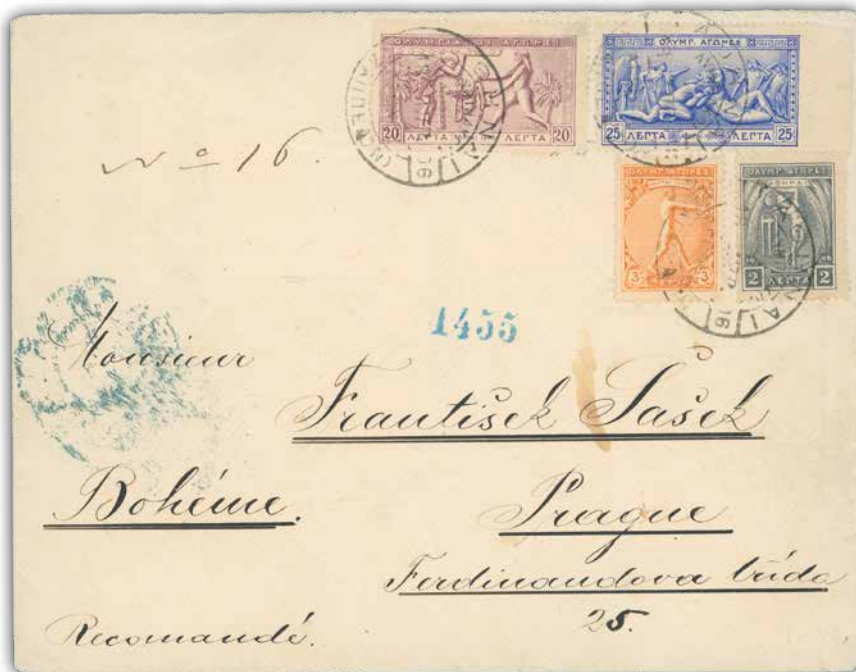 ΟΛΥΜΠΙΑΚΟΙ ΑΓΩΝΕΣ
20 ΛΕΠΤΑ ΛΕΠΤΑ 20
ΟΛΥΜΠ. ΑΓΩΝΕΣ
25 ΛΕΠΤΑ ΛΕΠΤΑ 25
No 16.
ΟΛΥΜΠ. ΑΓΩΝΕΣ
3 3
ΟΛΥΜΠ. ΑΓΩΝΕΣ
2 ΛΕΠΤΑ 2
1455
Monsieur
František Sašek
Bohéme. Prague
Ferdinandova třída
25.
Recomandé.